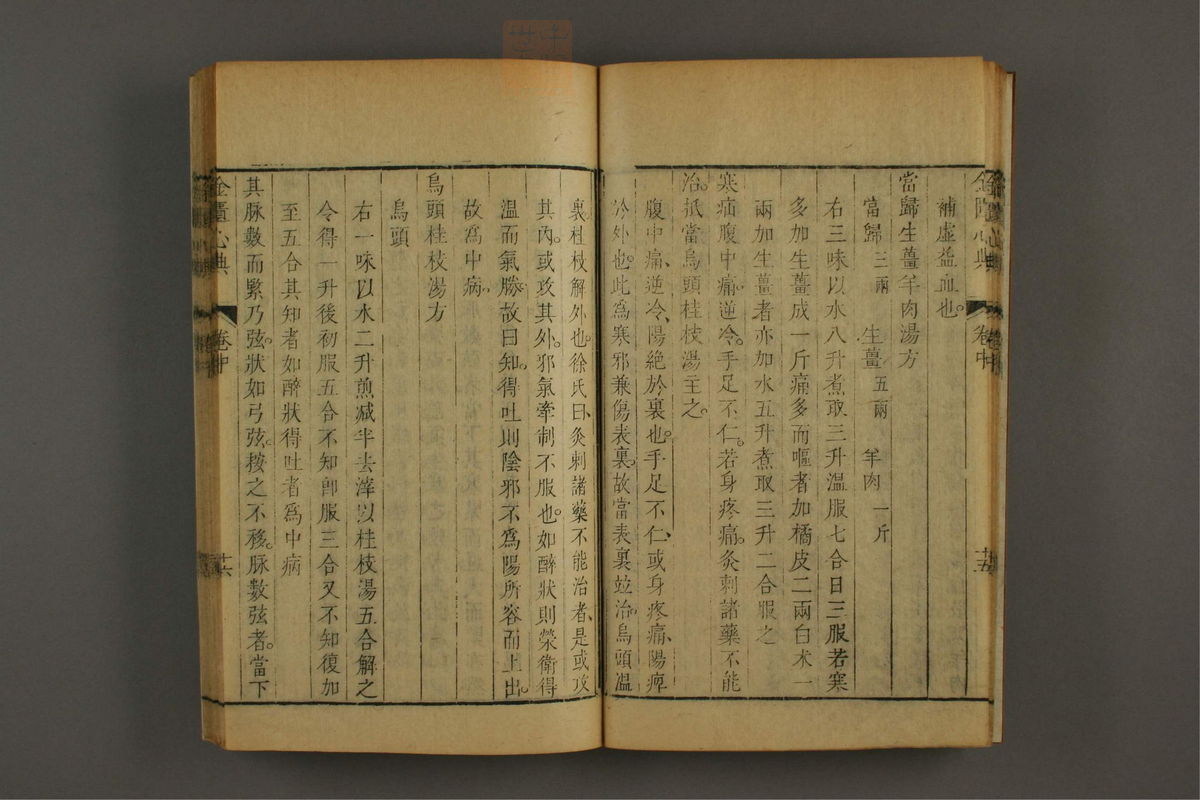 金匱心典 卷中 十五
補虛益血也。
當歸生薑羊肉湯方
當歸三兩 生薑五兩 羊肉一斤
右三味以水八升煮取三升溫服七合日三服若寒
多加生薑成一斤痛多而嘔者加橘皮二兩白术一
兩加生薑者亦加水五升煮取三升二合服之
寒疝腹中痛。逆冷。手足不仁。若身疼痛。灸刺諸藥不能
治。抵當烏頭桂枝湯主之。
腹中痛、逆冷、陽絶於裏也。手足不仁、或身疼痛、陽痺
於外也。此爲寒邪兼傷表裏。故當表裏竝治。烏頭溫
裏、桂枝解外也。徐氏曰、灸刺諸藥不能治者、是或攻
其內。或攻其外。邪氣牽制不服也。如醉狀則榮衛得
溫而氣勝。故曰知。得吐則陰邪不爲陽所容而上出。
故爲中病。
烏頭桂枝湯方
烏頭
右一味以水二升煎減半去滓以桂枝湯五合解之
令得一升後初服五合不知卽服三合又不知復加
至五合其知者如醉狀得吐者爲中病
其脉數而緊乃弦。狀如弓弦。按之不移。脉數弦者。當下
金匱心典 卷中 十六